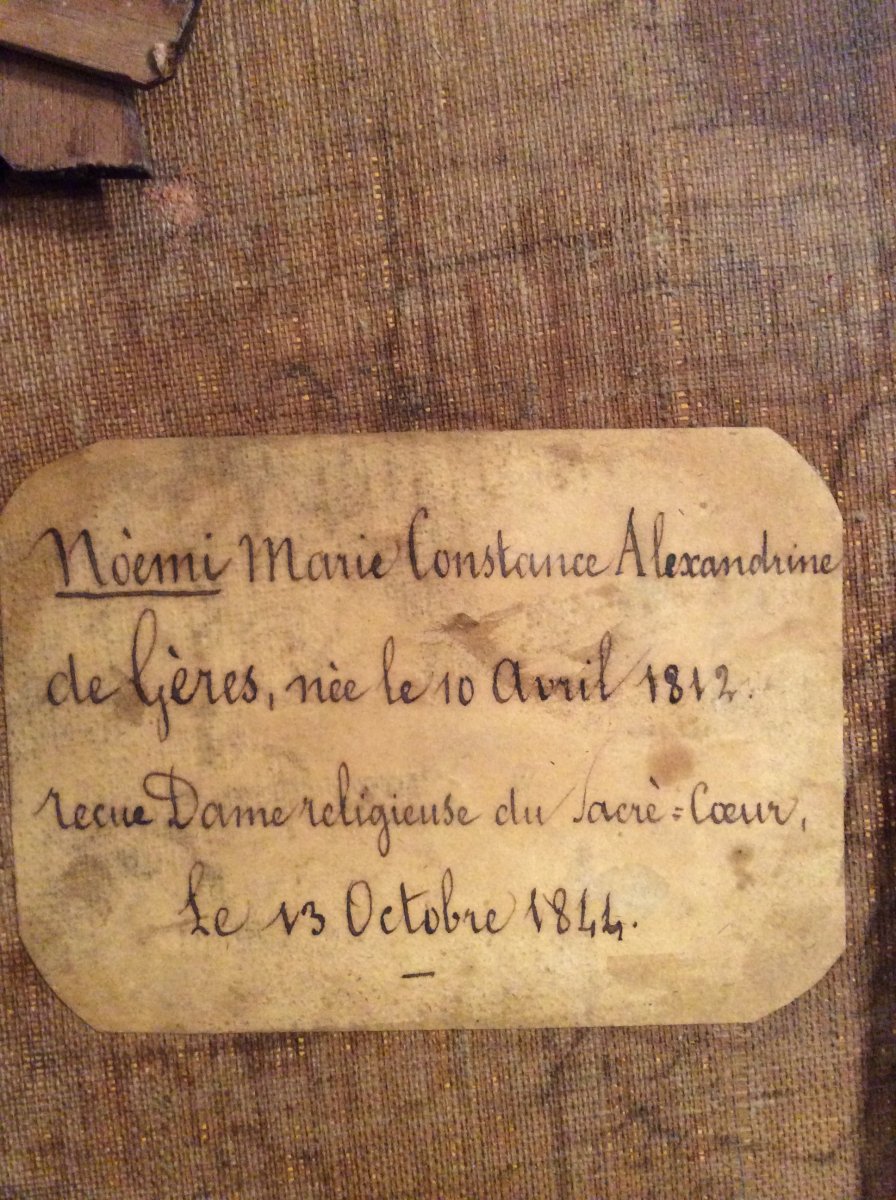 Nòemi Marie Constance Alèxandrine
de Gères, nèe le 10 Avril 1812.
recue Dame religieuse du Sacrè=Cœur,
Le 13 Octobre 1844.